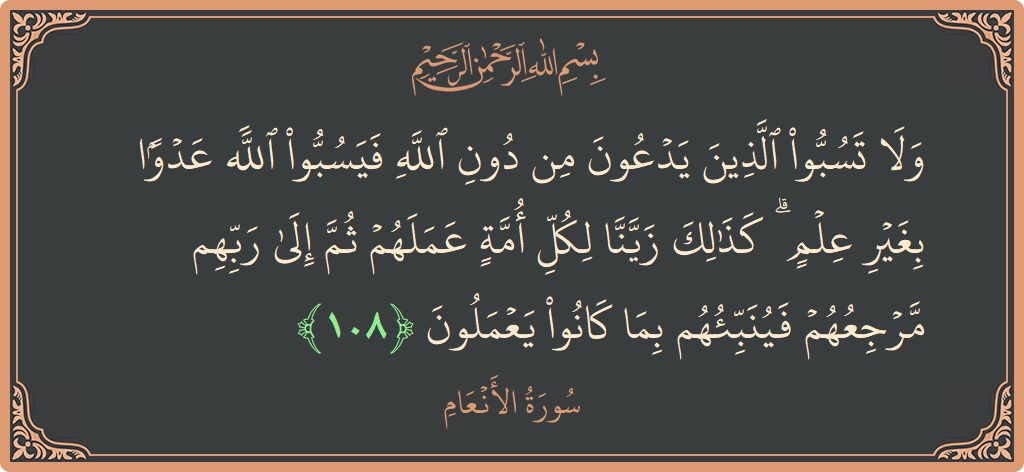 بِسْمِ اللهِ الرَّحْمٰنِ الرَّحِيْمِ
وَلَا تَسُبُّوا۟ ٱلَّذِينَ يَدْعُونَ مِن دُونِ ٱللَّهِ فَيَسُبُّوا۟ ٱللَّهَ عَدْوًۢا
بِغَيْرِ عِلْمٍ ۗ كَذَٰلِكَ زَيَّنَّا لِكُلِّ أُمَّةٍ عَمَلَهُمْ ثُمَّ إِلَىٰ رَبِّهِم
مَّرْجِعُهُمْ فَيُنَبِّئُهُم بِمَا كَانُوا۟ يَعْمَلُونَ ﴿١٠٨﴾
سُورَةُ الأَنْعَامِ